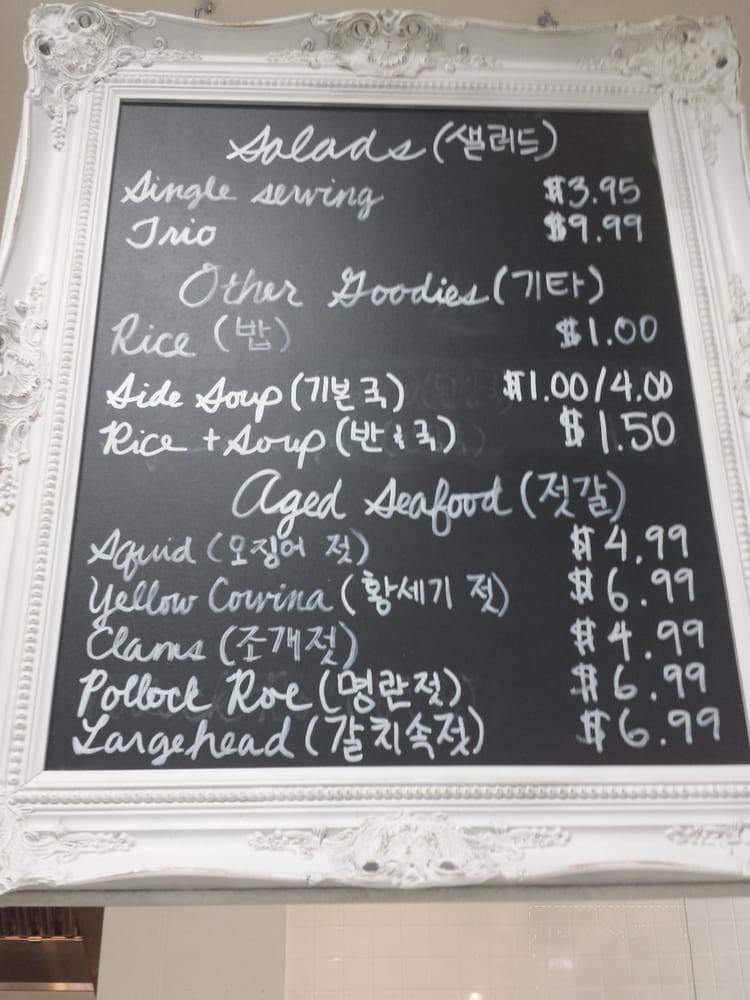 Salads (샐러드)
Single serving $3.95
Trio $9.99
Other Goodies (기타)
Rice (밥) $1.00
Side Soup (기본 국) $1.00/4.00
Rice + Soup (반 & 국) $1.50
Aged Seafood (젓갈)
Squid (오징어 젓) $4.99
Yellow Corvina (황세기 젓) $6.99
Clams (조개젓) $4.99
Pollock Roe (명란젓) $6.99
Largehead (갈치속젓) $6.99